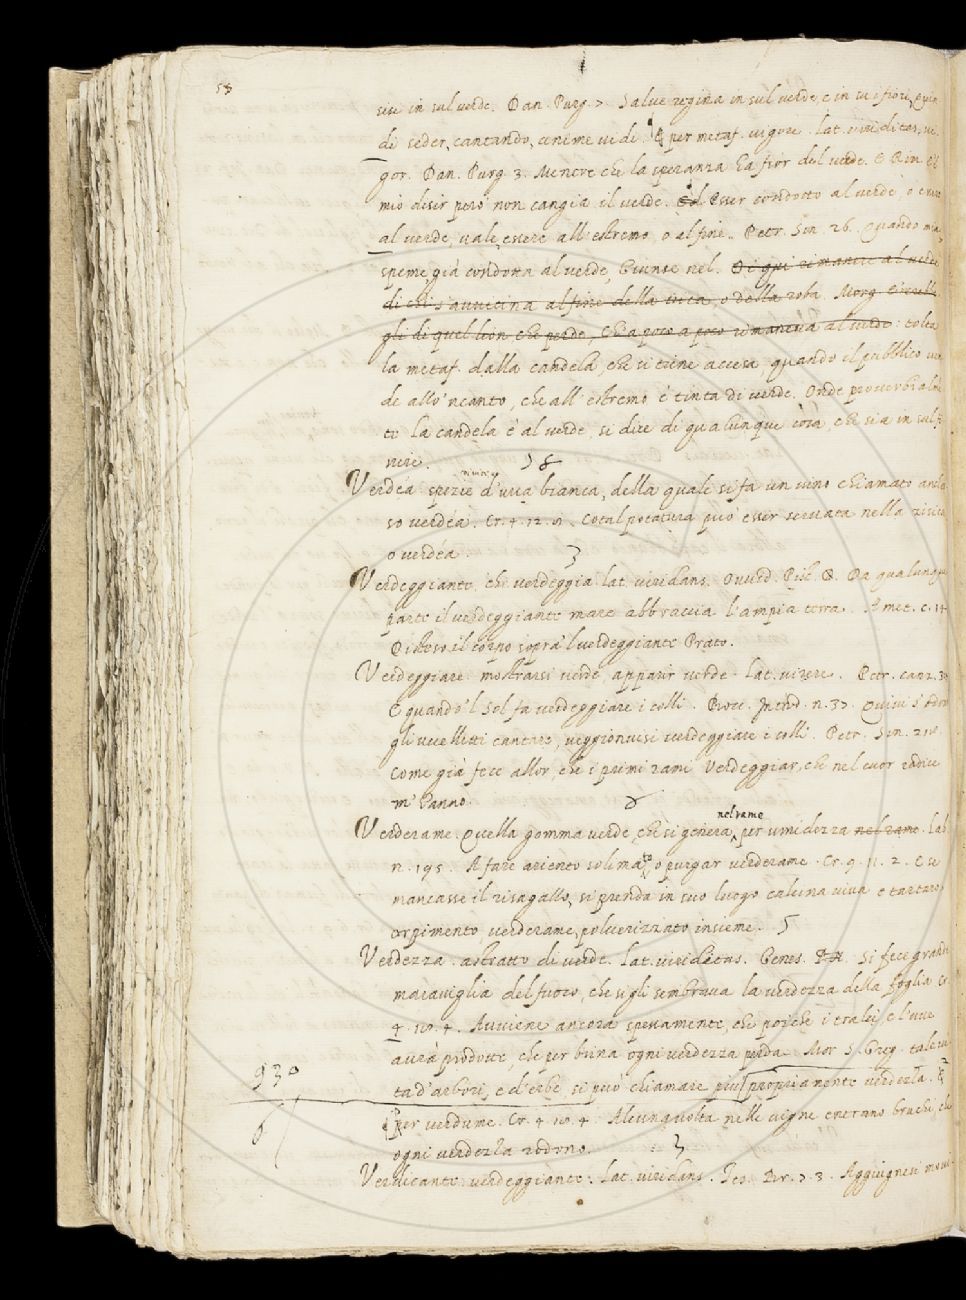 58
sise in sul verde. Dan. Purg. 7. Salve regina in sul verde, e in su i fiori, quin
di seder, cantando, anime vidi. E per metaf. vigore. lat. viriditas, vi
gor. Dan. Purg. 3. Mentre che la speranza ha fior del verde. E Rim.
mio disir però non cangia il verde. Esser condotto al verde, o
al verde, vale, essere all' estremo, o al fine. Petr. Son. 26. Quando mia
speme, già condotta al verde, Giunse nel. Di qui rimanere al verde
di chi s'avvicina al fine della vita, o della roba. Morg.
gli di quel lion che perde, Ch' a poco a poco rimaneva al verde: tolta
la metaf. dalla candela, che si tiene accesa, quando il pubblico ven
de allo 'ncanto, che all' estremo è tinta di verde. Onde proverbialmē
te. La candela è al verde, si dice di qualunque cosa, che sia in sul fi
nire.
Verdéa spezie d'uva bianca, della quale si fa un vino chiamato anche
so verdéa. Cr. 4. 12. 9. Cotal potatura può esser servata nella
o verdéa. 3
Verdeggiante. che verdeggia. lat. viridans. Ovvid. Pist. 8. Da qualunque
parte il verdeggiante mare abbraccia l'ampia terra. Amet. c. 14
Disteso il corno sopra 'l verdeggiante Prato.
Verdeggiare. mostrarsi verde, apparir verde. lat. virere. Petr. canz. 3
E quando 'l Sol fa verdeggiare i colli. Bocc. Introd. n. 37. Quivi s'odon
gli uccelletti cantare, veggionvisi verdeggiare i colli. Petr. Son.
Come già fece allor, che i primi rami Verdeggiar, che nel cuor radice
m' hanno.
nel rame
Verderame. Quella gomma verde, che si genera, per umidezza nel rame. Lab
n. 195. A fare ariento solimato, o purgar verderame. Cr. 9. 11. 2. E se
mancasse il risagallo, si prenda in suo luogo calcina viva e tartaro,
orpimento, verderame, polverizzato insieme. 5
Verdezza. astratto di verde. lat. viriditas. Genes. Si fece grande
maraviglia del fuoco, che vi gli sembrava la verdezza della foglia. Cr.
4. 10. 4. Avviene ancora spessamente, che poiche i tralci, e l'uve
avrà prodotte, che per brina ogni verdezza perda. Mor. S. Greg. tale
930
ta d'arbori, e d'erbe, si può chiamare più propriamente verdezza. E
per verdume. Cr. 4. 10. 4. Alcunavolta nelle vigne entrano bruchi, che
6
ogni verdezza rodono. 3
Verdicante. verdeggiante. lat. viridans. Tes. Br. 7. 3. Aggiugnesi